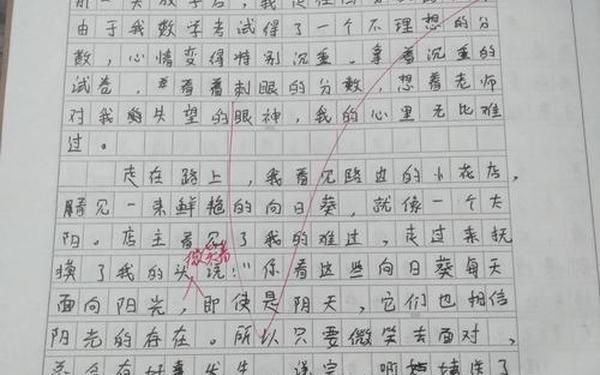 前一天放学后，我走在
由于我数学考试得了一个不理想的分
数，心情变得特别沉重。拿着沉重的
试卷，看着刺眼的分数，想着老师
对我失望的眼神，我的心里无比难
过。
走在路上，我看见路边的小花店，
瞧见一束鲜艳的向日葵，就像一个太
阳。店主看见了我的难过，走过来抚
摸了我的头微笑着说："你看这些向日葵每天
面向阳光，即使是阴天，它们也相信
阳光的存在。所以只要微笑去面对，
总会有好事发生。送完，啊姨送了